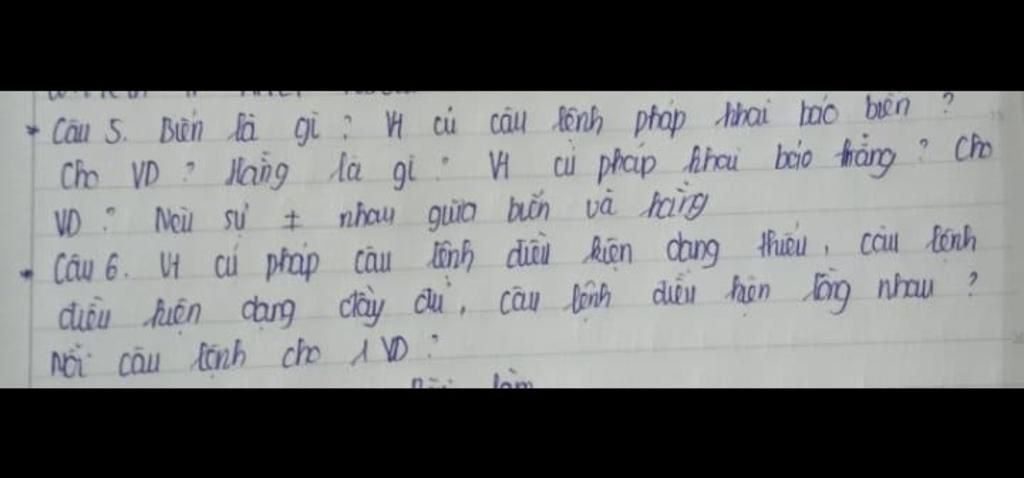 * Câu 5. Biến là gì ? Vt cú câu lệnh pháp khai báo biến ?
Cho VD ? Hằng là gì ? Vt cú pháp khai báo hằng ? Cho
VD ? Nêu sự ± nhau giữa biến và hằng
* Câu 6. Vt cú pháp câu lệnh điều kiện dạng thiếu, câu lệnh
điều kiện dạng đầy đủ, câu lệnh điều kiện lồng nhau ?
Mỗi câu lệnh cho 1 VD ?